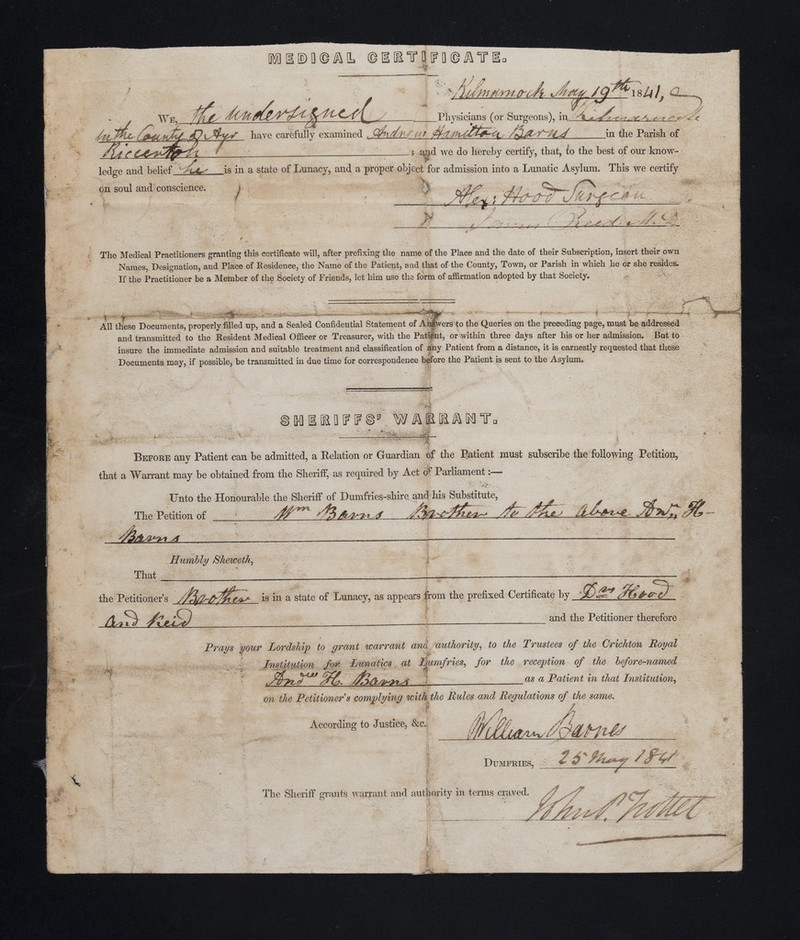 MEDICAL CERTIFICATE.
Kilmarnock May 19th 1841,
WE, the undersigned Physicians (or Surgeons), in Kilmarnock
in the County of Ayr have carefully examined Andrew Hamilton Barns in the Parish of
Riccarton ; and we do hereby certify, that, to the best of our know-
ledge and belief he is in a state of Lunacy, and a proper object for admission into a Lunatic Asylum. This we certify
on soul and conscience.
Alex: Hood Surgeon
Reed M.D.
The Medical Practitioners granting this certificate will, after prefixing the name of the Place and the date of their Subscription, insert their own
Names, Designation, and Place of Residence, the Name of the Patient, and that of the County, Town, or Parish in which he or she resides.
If the Practitioner be a Member of the Society of Friends, let him use the form of affirmation adopted by that Society.
All these Documents, properly filled up, and a Sealed Confidential Statement of Answers to the Queries on the preceding page, must be addressed
and transmitted to the Resident Medical Officer or Treasurer, with the Patient, or within three days after his or her admission. But to
insure the immediate admission and suitable treatment and classification of any Patient from a distance, it is earnestly requested that these
Documents may, if possible, be transmitted in due time for correspondence before the Patient is sent to the Asylum.
SHERIFFS' WARRANT.
BEFORE any Patient can be admitted, a Relation or Guardian of the Patient must subscribe the following Petition,
that a Warrant may be obtained from the Sheriff, as required by Act of Parliament :—
Unto the Honourable the Sheriff of Dumfries-shire and his Substitute,
The Petition of Wm Barns Brother to the above Andw H-
Barns
Humbly Sheweth,
That
the Petitioner's Brother is in a state of Lunacy, as appears from the prefixed Certificate by Drs Hood
and Reid and the Petitioner therefore
Prays your Lordship to grant warrant and authority, to the Trustees of the Crichton Royal
Institution for Lunatics at Dumfries, for the reception of the before-named
Andw H. Barns as a Patient in that Institution,
on the Petitioner's complying with the Rules and Regulations of the same.
According to Justice, &c.
William Barnes
DUMFRIES, 25 May 1841
The Sheriff grants warrant and authority in terms craved.